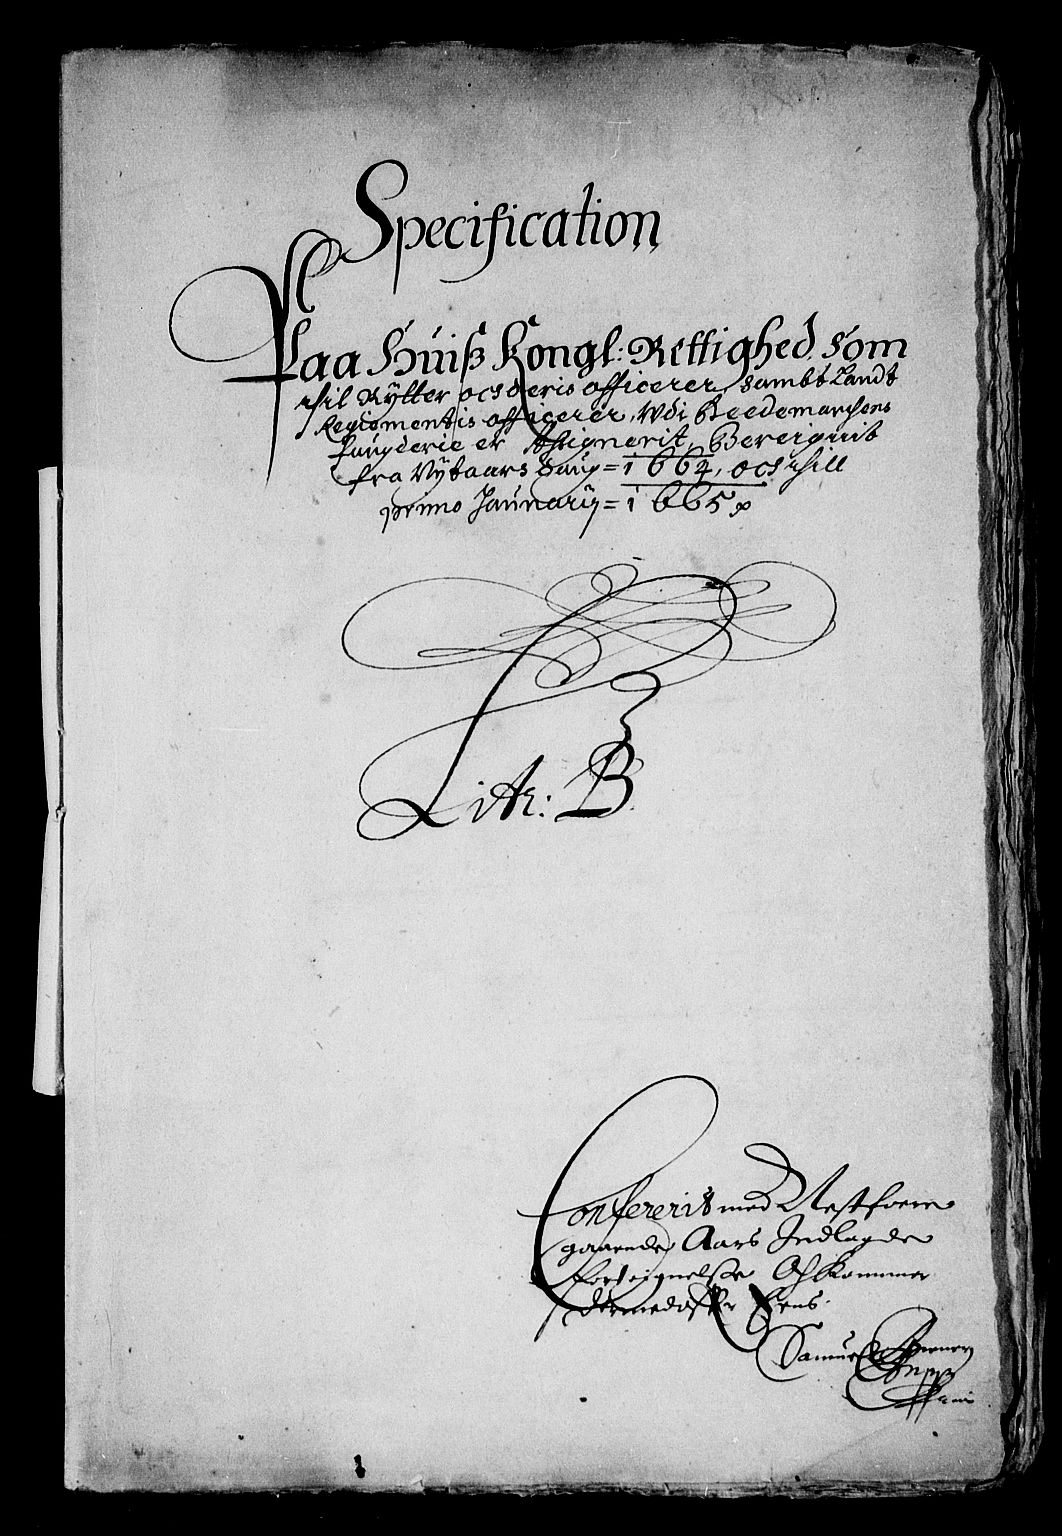 Specification
Paa Huiß Kongl: Rettighed, som
thil Rÿtter och deris officerer, sambt Landt
Regiementis officerer, Udi Heedemarchens
fougderie er Assignerit, Beregnit
fra Nÿtaars Daug = 1664, och thill
primo Januarij = 1665
Litr: B
Confererit med Nestfore
gaaende Aars Indlagde
forteignelße Och kommer
dermed offr Eens.
Samuel